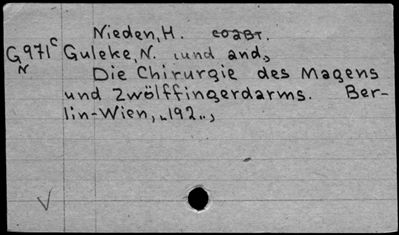 Nieden, H. соавт.
G 971 c Guleke, N. und and.,
N Die Chirurgie des Magens
und Zwölffingerdarms. Ber-
lin-Wien, „192..,